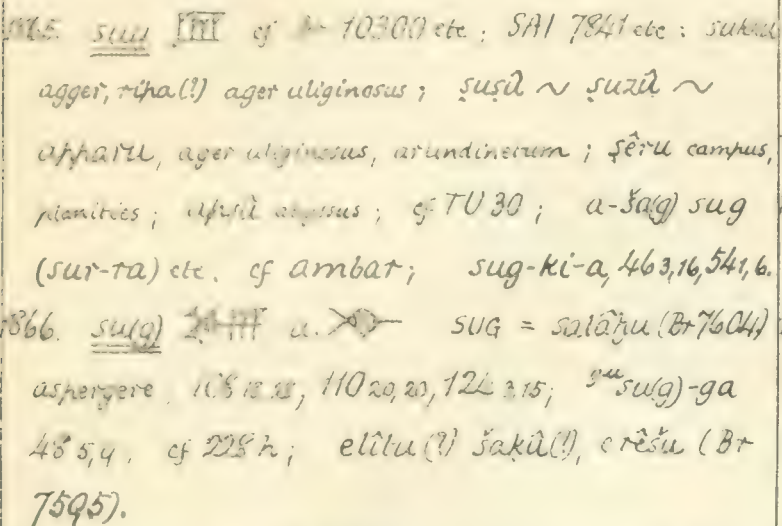 sug cf 10300 etc; SAI 7841 etc; 
agger, ripa(!) ager uliginosus; ṣuṣû ~ ṣuzû ~
apparu, ager uliginosus, arundinetum; ṣêru campus,
planities; apsû abyssus; cf TU 30; a-ša(g) sug
(sur-ra) etc. cf ambar; sug-ki-a, 46 3,16, 54 1,6.
866. su(g) a. SUG = salâḫu (Br 7604)
aspergere, 110 20,20, 124 3,15; su(g)-ga
48 5,4. cf 228 h; elîtu(!) šaḳû(!), erêšu (Br
7595).